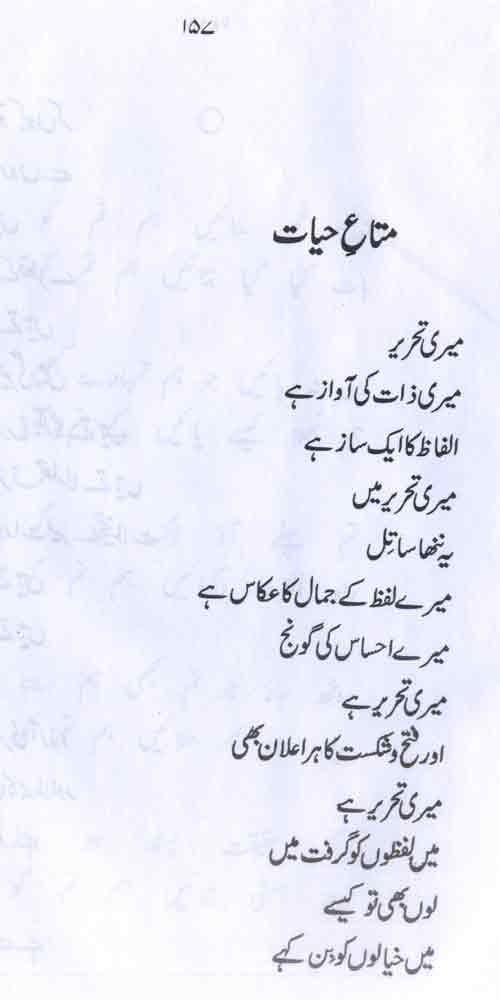 ۱۵۷
متاعِ حیات
میری تحریر
میری ذات کی آواز ہے
الفاظ کا ایک ساز ہے
میری تحریر میں
یہ ننھا سا تِل
میرے لفظ کے جمال کا عکاس ہے
میرے احساس کی گونج
میری تحریر ہے
اور فتح و شکست کا ہر اعلان بھی
میری تحریر ہے
میں لفظوں کو گرفت میں
لوں بھی تو کیسے
میں خیالوں کو بِن کہے